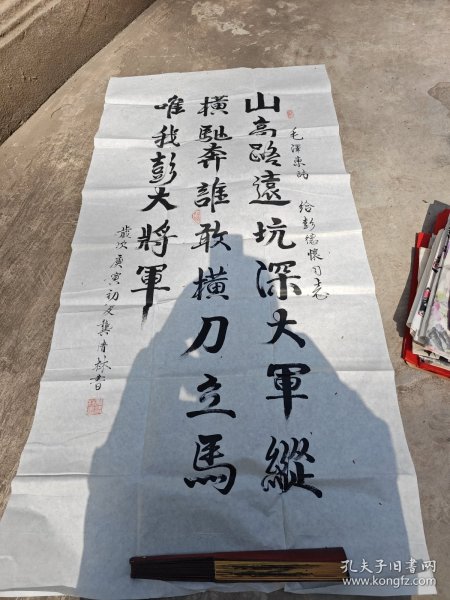 毛澤東的 给彭德懷同志
山高路遠坑深大軍縱
橫馳奔誰敢橫刀立馬
唯我彭大將軍
歲次庚寅初夏龔林書
孔夫子旧书网
www.kongfz.com